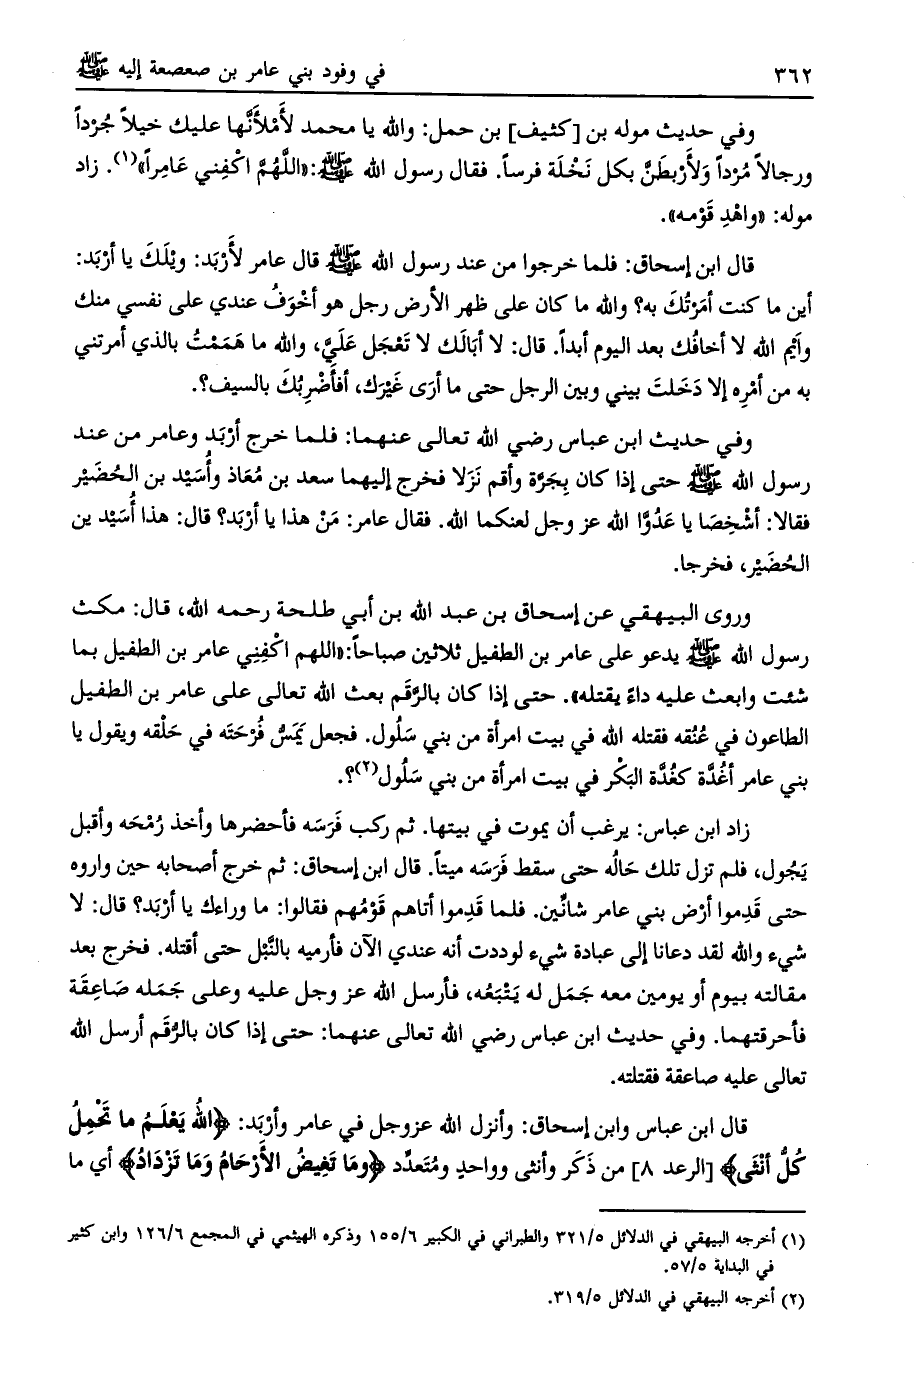 ٣٦٢ في وفود بني عامر بن صعصعة إليه ﷺ
وفي حديث موله بن [كثيف] بن حمل: والله يا محمد لأَمْلأَنَّها عليك خيلاً جُرْداً
ورجالاً مُرْداً وَلأَرْبطَنَّ بكل نَخْلَة فرساً. فقال رسول الله ﷺ: «اللَّهُمَّ اكْفِني عَامِراً»(١). زاد
موله: «واهْدِ قَوْمه».
قال ابن إسحاق: فلما خرجوا من عند رسول الله ﷺ قال عامر لأَرْبَد: ويْلَكَ يا أرْبَد:
أين ما كنت أمَرْتُكَ به؟ والله ما كان على ظهر الأرض رجل هو أخْوَفُ عندي على نفسي منك
وأيْم الله لا أخافُك بعد اليوم أبداً. قال: لا أبَالَك لا تَعْجَل عَلَيَّ، والله ما هَمَمْتُ بالذي أمرتني
به من أمْرِه إلا دَخَلتَ بيني وبين الرجل حتى ما أرَى غَيْرَك، أفأَضْرِبُكَ بالسيف؟.
وفي حديث ابن عباس رضي الله تعالى عنهما: فلما خرج أرْبَد وعامر من عند
رسول الله ﷺ حتى إذا كان بِجَرَّة وأقم نَزَلا فخرج إليهما سعد بن مُعَاذ وأُسَيْد بن الحُضَيْر
فقالا: أشْخِصَا يا عَدُوَّا الله عز وجل لعنكما الله. فقال عامر: مَنْ هذا يا أرْبَد؟ قال: هذا أُسَيْد ين
الحُضَيْر، فخرجا.
وروى البيهقي عن إسحاق بن عبد الله بن أبي طلحة رحمه الله، قال: مكث
رسول الله ﷺ يدعو على عامر بن الطفيل ثلاثين صباحاً: «اللهم اكْفِنِي عامر بن الطفيل بما
شئت وابعث عليه داءً يقتله». حتى إذا كان بالرَّقَم بعث الله تعالى على عامر بن الطفيل
الطاعون في عُنُقه فقتله الله في بيت امرأة من بني سَلُول. فجعل يَمَسُّ قُرْحَتَه في حَلْقه ويقول يا
بني عامر أغُدَّة كغُدَّة البَكْر في بيت امرأة من بني سَلُول(٢)؟.
زاد ابن عباس: يرغب أن يموت في بيتها. ثم ركب فَرَسَه فأحضرها وأخذ رُمْحَه وأقبل
يَجُول، فلم تزل تلك حَالُه حتى سقط فَرَسَه ميتاً. قال ابن إسحاق: ثم خرج أصحابه حين واروه
حتى قَدِموا أرْض بني عامر شانِّين. فلما قَدِموا أتاهم قَوْمُهم فقالوا: ما وراءك يا أرْبَد؟ قال: لا
شيء والله لقد دعانا إلى عبادة شيء لوددت أنه عندي الآن فأرميه بالنَّبْل حتى أقتله. فخرج بعد
مقالته بيوم أو يومين معه جَمَل له يَتْبَعُه، فأرسل الله عز وجل عليه وعلى جَمَله صَاعِقَة
فأحرقتهما. وفي حديث ابن عباس رضي الله تعالى عنهما: حتى إذا كان بالرَّقَم أرسل الله
تعالى عليه صاعقة فقتلته.
قال ابن عباس وابن إسحاق: وأنزل الله عزوجل في عامر وأرْبَد: ﴿اللهُ يَعْلَمُ ما تَحْمِلُ
كُلُّ أنْثَى﴾ [الرعد ٨] من ذَكَر وأنثى وواحدٍ ومُتَعدِّد ﴿وما تَغِيضُ الأَرْحَامُ وَمَا تَزْدَادُ﴾ أي ما
(١) أخرجه البيهقي في الدلائل ٣٢١/٥ والطبراني في الكبير ١٥٥/٦ وذكره الهيثمي في المجمع ١٢٦/٦ وابن كثير
في البداية ٥٧/٥.
(٢) أخرجه البيهقي في الدلائل ٣١٩/٥.